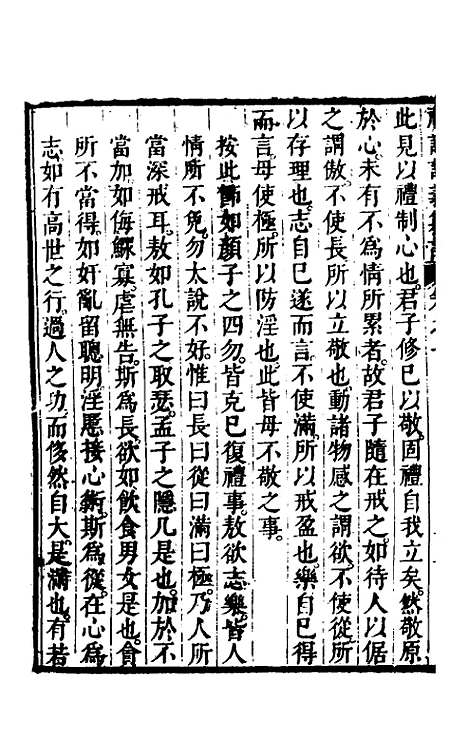 此見以禮制心也。君子修已以敬。固禮自我立矣。然敬原
於心。未有不為情所累者。故君子隨在戒之。如待人以倨
之謂傲。不使長所以立敬也。動諸物感之謂欲。不使從所
以存理也。志自已遂而言。不使滿。所以戒盈也。樂自已得
而言。毋使極。所以防淫也。此皆毋不敬之事。
按此節如顏子之四勿。皆克已復禮事。敖欲志樂。皆人
情所不免。勿太說不好。惟曰長曰從曰滿曰極。乃人所
當深戒耳。敖如孔子之取瑟。孟子之隱几是也。加於不
當加如侮鰥寡。虐無告。斯為長。欲如飲食男女是也。貪
所不當得。如奸亂留聰明。淫慝接心術。斯為從。在心為
志。如有高世之行。過人之功。而侈然自大。是滿也。有若